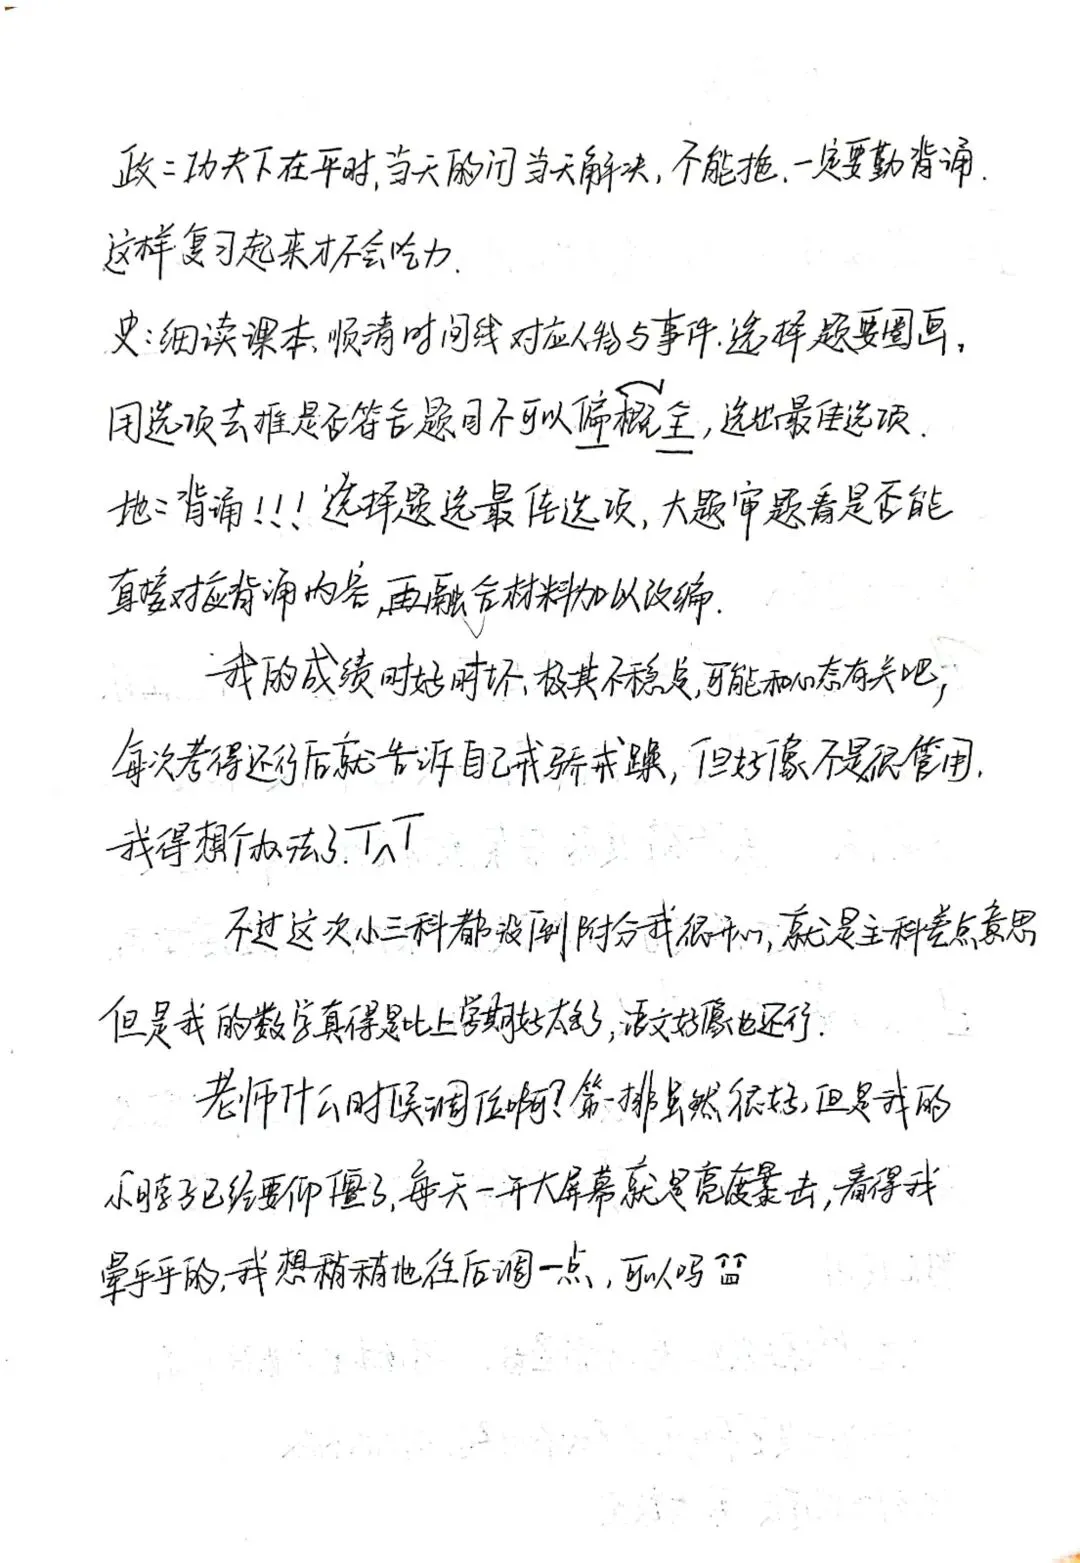 政:功夫下在平时,当天的问当天解决,不能拖.一定要勤背诵.
这样复习起来才不会吃力.
史:细读课本、顺清时间线对应人物与事件.选择题要圈画,
用选项去推是否符合题目不可以偏概全,选出最佳选项.
地:背诵!!!选择题选最佳选项,大题审题看是否能
直接对应背诵内容,再融合材料加以改编.
我的成绩时好时坏、极其不稳点,可能和心态有关吧,
每次考得还行后就告诉自己戒骄戒躁,但好像不是很管用.
我得想个办法了.T^T
不过这次小三科都没到附分我很开心,就是主科差点意思
但是我的数学真得是比上学期好太多了,语文好像也还行.
老师什么时候调位啊?第一排虽然很好,但是我的
小脖子已经要仰僵了,每天一开大屏幕就是亮度暴击,看得我
晕乎乎的,我想稍稍地往后调一点,可以吗